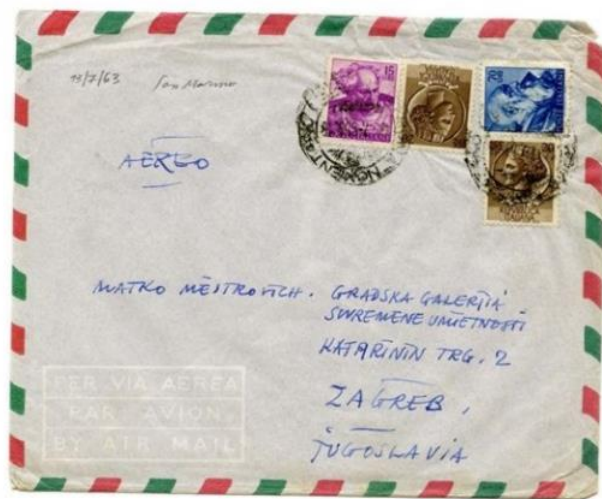 13/7/63 San Marino
15
AEREO
NOMENT
MATKO MEŠTROVICH. GRADSKA GALERIJA
SUVREMENE UMJETNOSTI
KATARININ TRG. 2
ZAGREB,
JUGOSLAVIA
PER VIA AEREA
PAR AVION
BY AIR MAIL